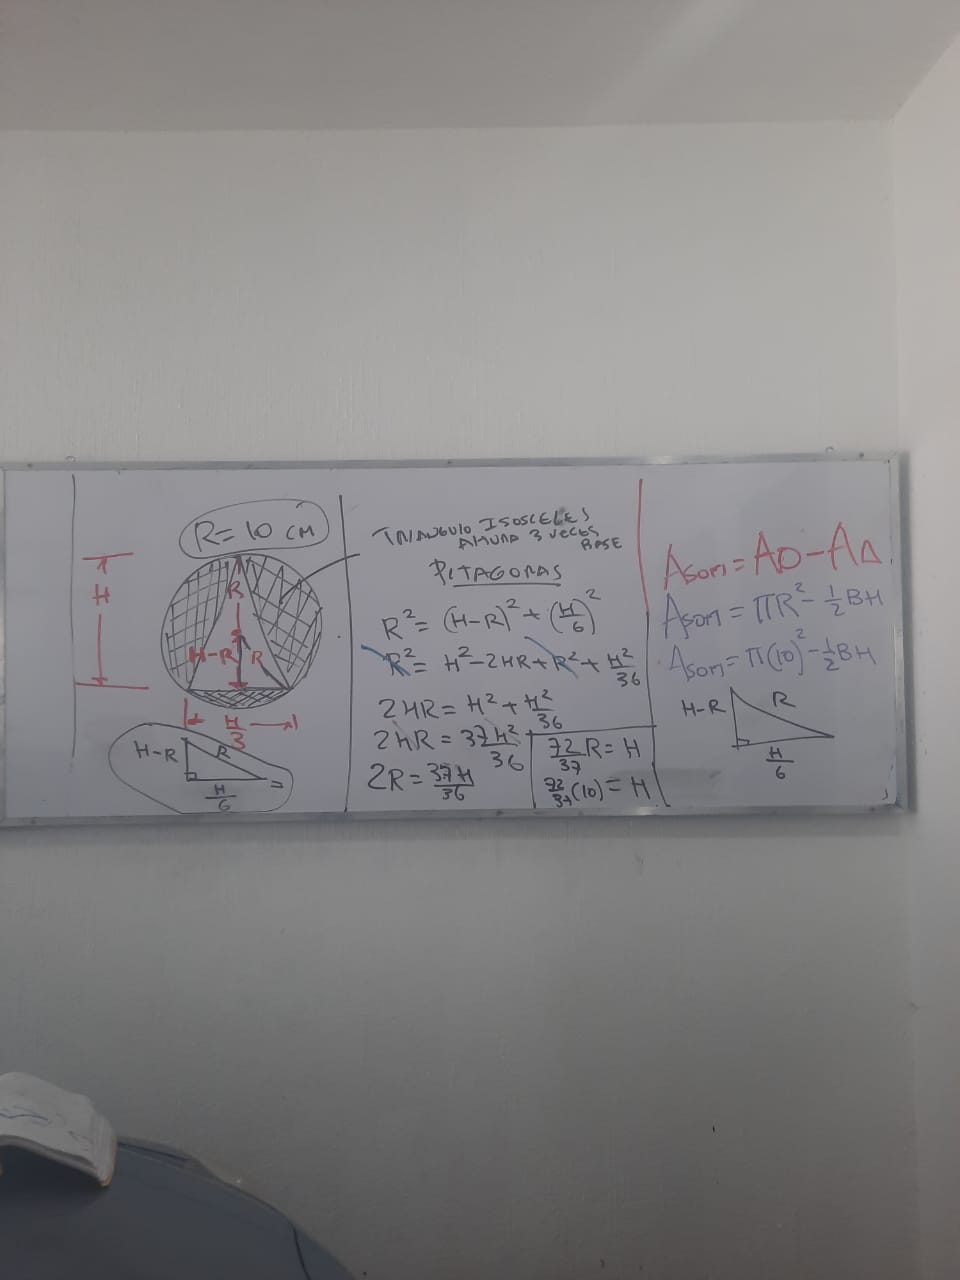 R = 10 cm
H
R
H-R
R
H/3
H-R
R
H/6
=
TRIANGULO ISOSCELES
ALTURA 3 VECES
BASE
PITAGORAS
R² = (H-R)² + (H/6)²
R² = H² - 2HR + R² + H²/36
2HR = H² + H²/36
2HR = 37H²/36
2R = 37H/36
72/37 R = H
72/37 (10) = H
Asom = AO - AΔ
Asom = πR² - 1/2 BH
Asom = π(10)² - 1/2 BH
H-R
R
H/6